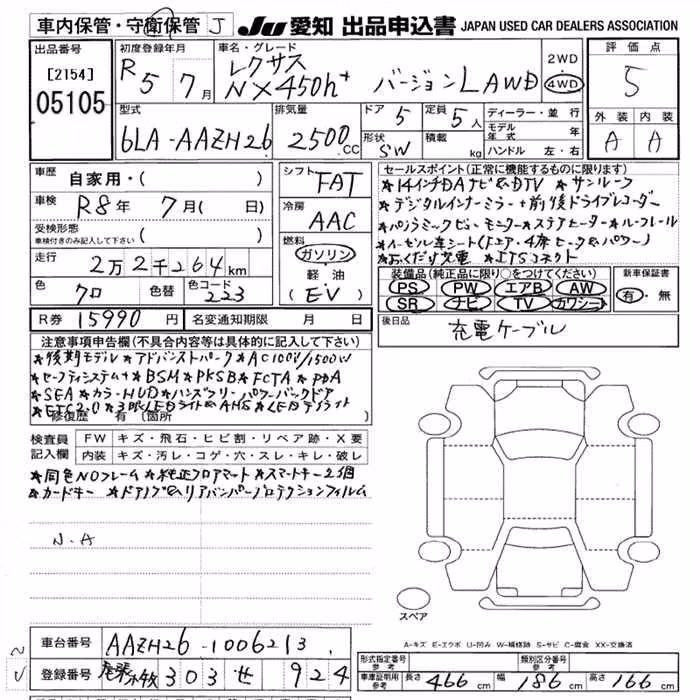 車内保管・守衛保管 J
JU 愛知 出品申込書 JAPAN USED CAR DEALERS ASSOCIATION
出品番号
[2154]
05105
初度登録年月
R5 7月
車名・グレード
レクサス
NX450h+ バージョンL AWD
2WD
4WD
評価点
5
外装 内装
A A
型式
6LA-AAZH26
排気量
2500 CC
ドア 5
定員 5人
形状 SW
積載 kg
ディーラー・並行
モデル年式 年
ハンドル 左・右
車歴 自家用・( )
車検 R8年 7月( 日)
受検形態
車検付きのみ記入して下さい ( )
走行 2万2千264km
色 クロ 色替 色コード 223
シフト FAT
冷房 AAC
燃料
ガソリン
軽油
(EV)
セールスポイント(正常に機能するものに限ります)
★14インチDAナビ&DTV ★サンルーフ
★デジタルインナーミラー+前後ドライブレコーダー
★パノラミックビューモニター★ステアヒーター★ルーフレール
★おくだけ充電 ★ITSコネクト
装備品(純正品に限り○をつけてください)
PS PW エアB AW
SR ナビ TV カワシート
新車保証書
有・無
R券 15990円 名変通知期限 月 日
後日品 充電ケーブル
注意事項申告欄(不具合内容等は具体的に記入して下さい)
★後期モデル★アドバンストパーク★AC100V/1500W
★セーフティシステム+★BSM★PKSB★FCTA★PDA
★SEA★カラーHUD★ハンズフリーパワーバックドア
★ETC2.0★3眼LEDライト&AHS★LEDデイライト
修復歴 有(箇所
検査員記入欄
FW キズ・飛石・ヒビ割・リペア跡・X要
内装 キズ・汚レ・コゲ・穴・スレ・キレ・破レ
★同色NOフレーム★純正フロアマット★スマートキー2個
★カードキー ★ドアノブ&リアバンパープロテクションフィルム
N-A
スペア
A-キズ E-エクボ U-凹み W-補修跡 S-サビ C-腐食 XX-交換済
車台番号 AAZH26-1006213
登録番号 尾張小牧 303 せ 924
形式指定番号 参考
類別区分番号 参考
車庫証明用 参考 長さ 466cm 幅 186cm 高さ 166cm